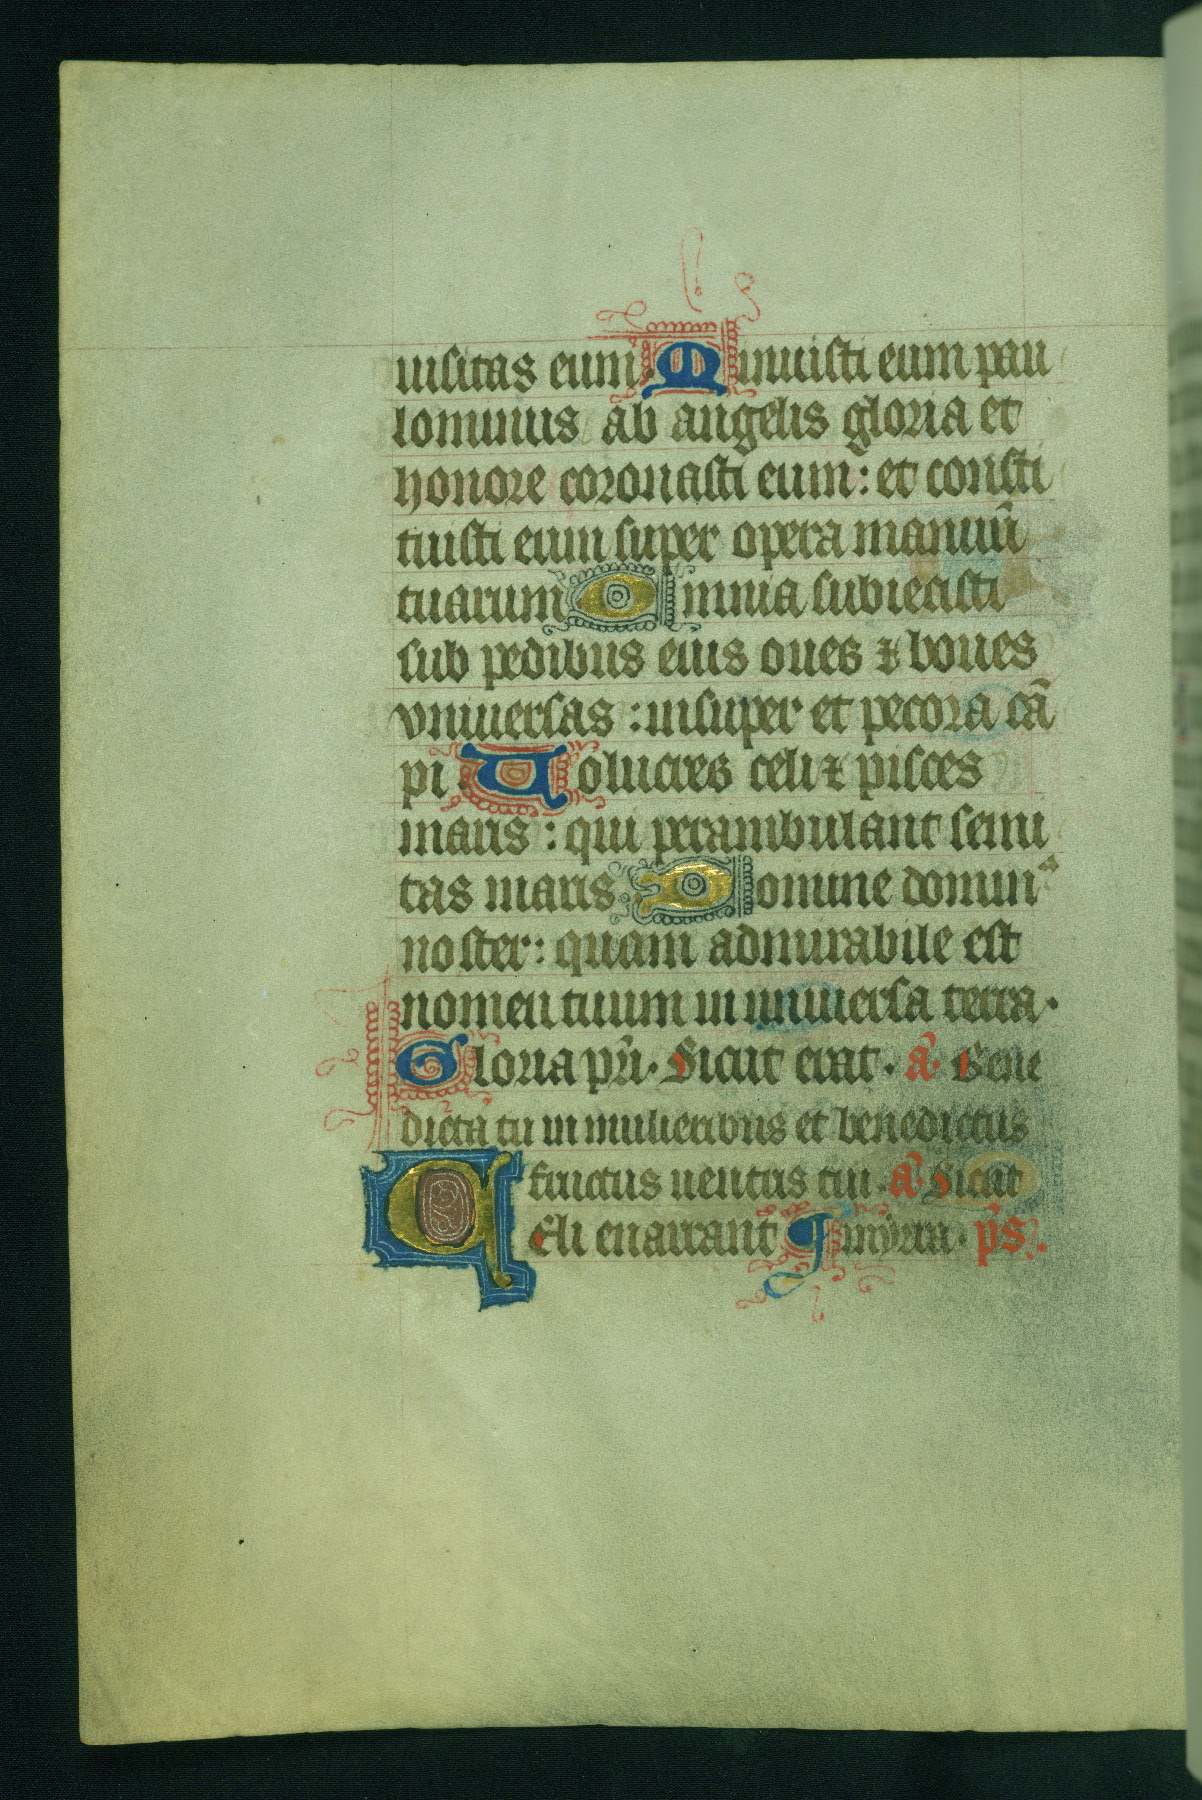 uisitas eum Minuisti eum pau
lominus ab angelis gloria et
honore coronasti eum : et consti
tuisti eum super opera manuū
tuarum Omnia subiecisti
sub pedibus eius oues ⁊ boues
vniuersas : insuper et pecora cā
pi Uolucres celi ⁊ pisces
maris : qui perambulant semi
tas maris Domine domin⁹
noster : quam admirabile est
nomen tuum in uniuersa terra .
Gloria pr̄i . Sicut erat . a᷑ . Bene
dicta tu in mulieribus et benedictus
fructus uentris tui . a᷑ . Sicut
Celi enarrant mirra . ps .